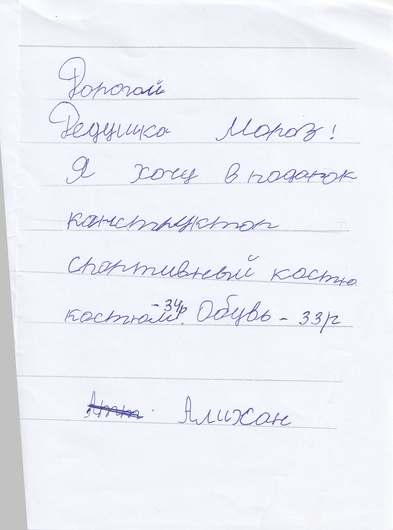 Дорогой
Дедушка Мороз!
Я хочу в подарок
канструктор
спортивный костю
костюм - 34р. Обувь - 33р
Алихан